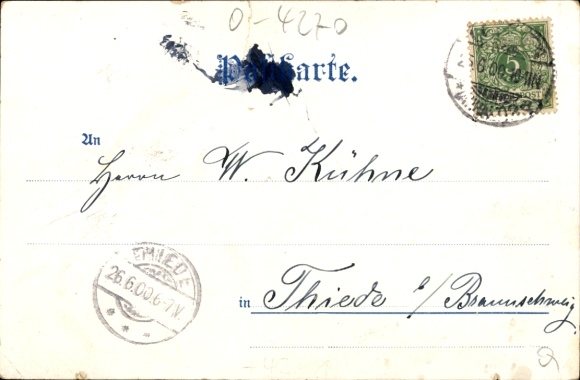 0-4270
Postkarte.
5
An
Herrn W. Kühne
THIEDE
26.6.00.6-7N.
in Thiede b/Braunschweig